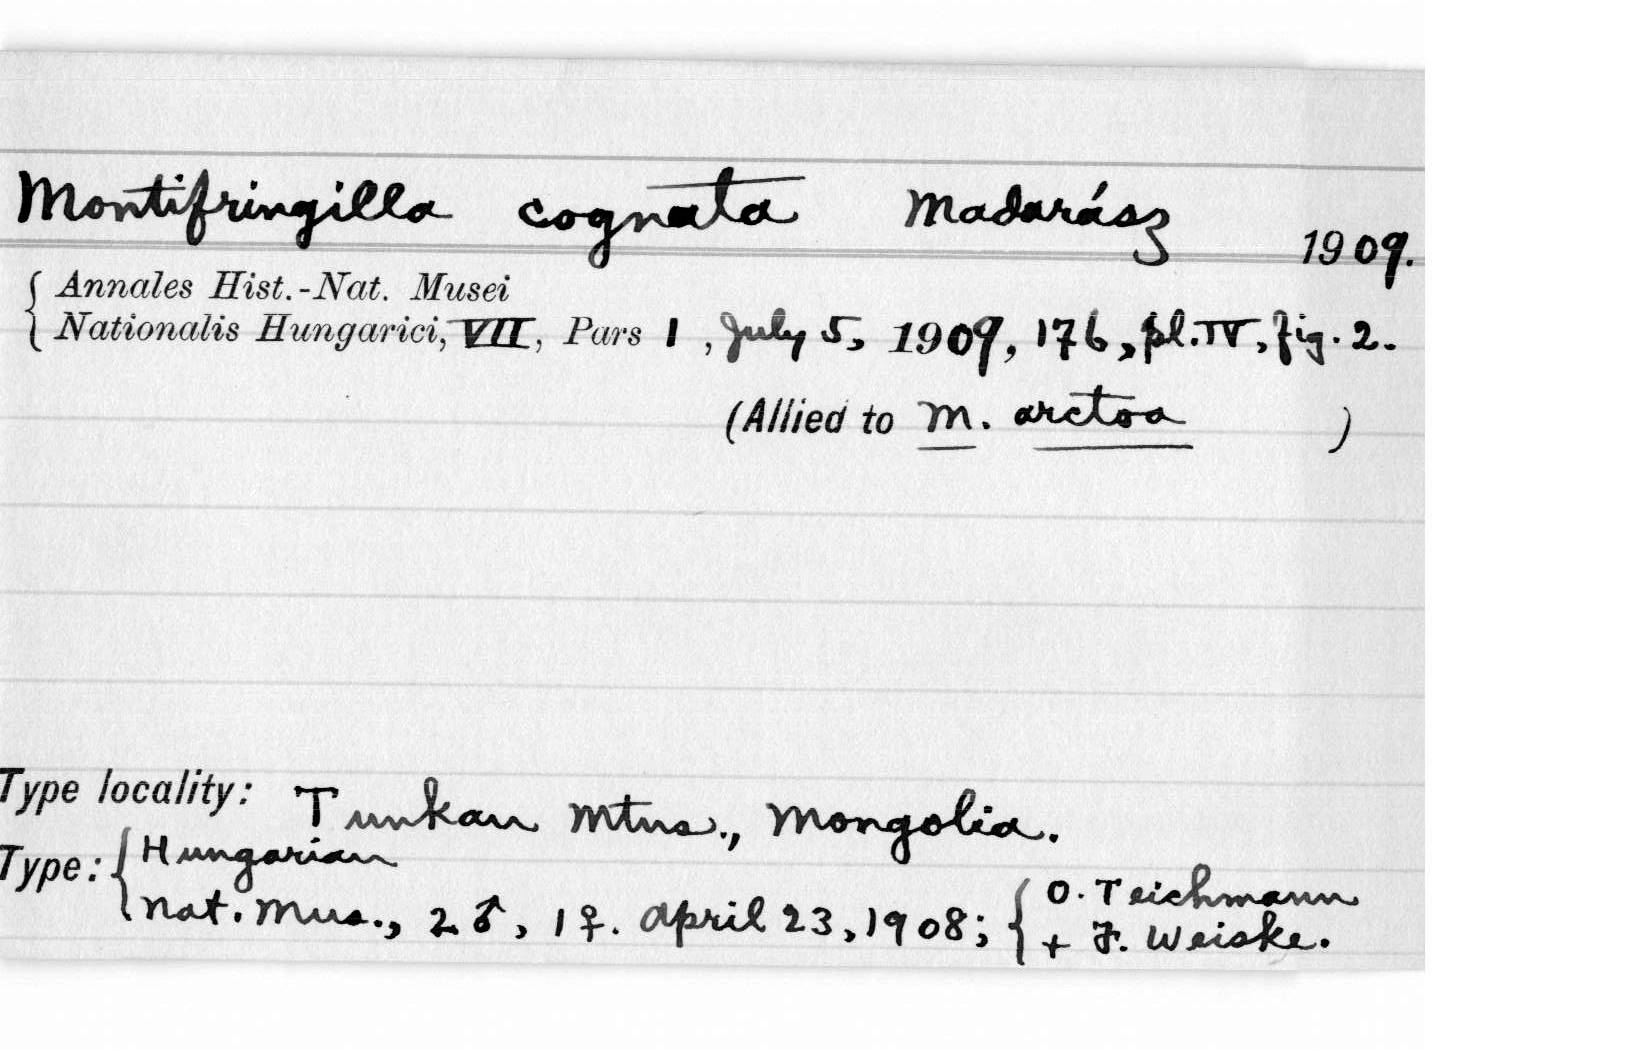 Montifringilla cognata Madarász 1909.
{ Annales Hist.-Nat. Musei
Nationalis Hungarici, VII, Pars 1, July 5, 1909, 176, pl. IV, fig. 2.
(Allied to M. arctoa )
Type locality: Tunkan Mtns., Mongolia.
Type: { Hungarian
Nat. Mus., 2 ♂, 1 ♀. April 23, 1908; { O. Teichmann
+ F. Weiske.